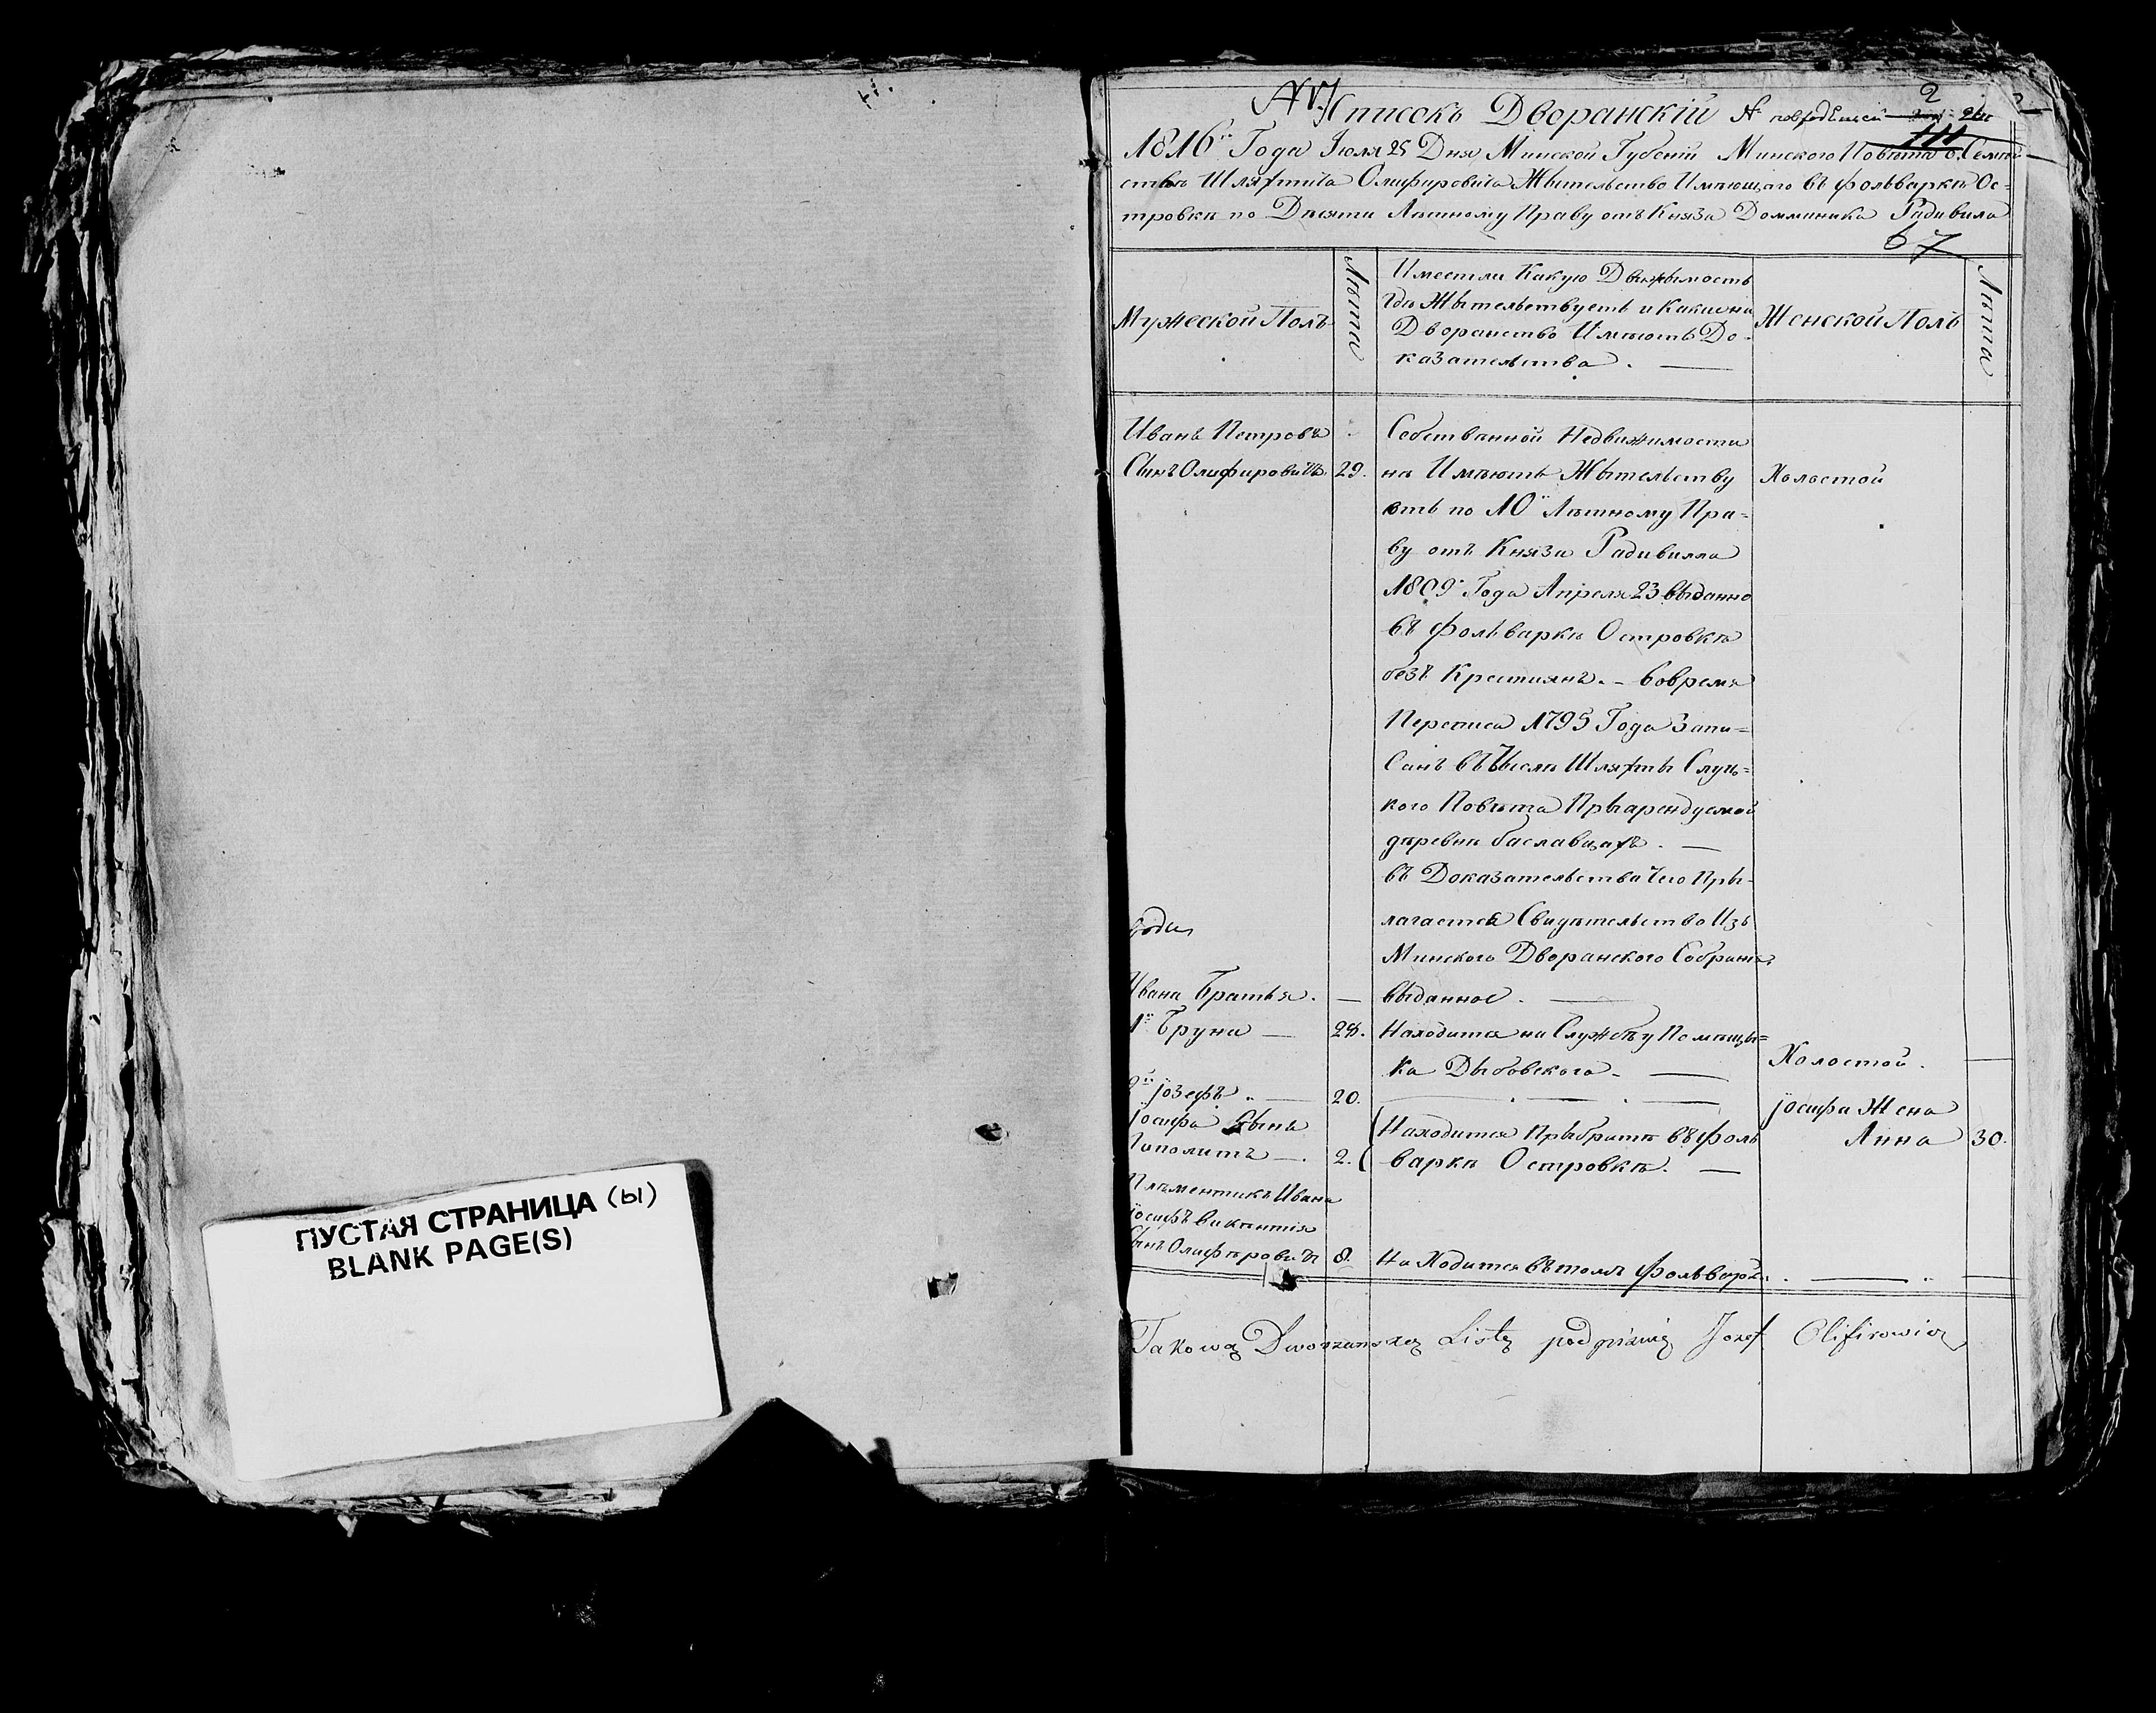 ПУСТАЯ СТРАНИЦА (ы)
BLANK PAGE(S)
Списокъ Дворанскій №
2
1816го Года Іюля 25 Дня Минской Губеніи Минского Повѣта о Семей
ствѣ Шляхтича Олифировича Жытельство Имѣющаго въ фольваркѣ Ос=
тровкѣ по Десяти Лѣтному Праву отъ Князя Домминика Радивила
67
Мужеской Полъ
Лѣта
Имеетли Какую Движымость
Где Жытельствуетъ и Какие на
Дворанство Имѣютъ До-
казательства. —
Женской Полъ
Лѣта
Иванъ Петровъ
Сынъ Олифировичъ
29.
Собственной Недвижимости
не Имѣютъ Жытельству
етъ по 10 Лѣтному Пра=
ву отъ Князя Радивилла
1809 Года Апреля 23 выданно
въ фольваркѣ Островкѣ
безъ Крестиянъ. - Вовремя
Переписа 1795 Года Запи=
санъ въ Числѣ Шляхты Слуц=
кого Повѣта Прыарендуемой
деревнѣ баславцахъ. —
въ Доказательства Чего Пры-
лагается Свидѣтельство Изъ
Минского Дворанского Собрания
выданное. —
Холостой
Ивана Братья. —
1й Бруна —
28.
Находится на Службѣ у Помѣщы=
ка Дыбовского. —
Холостой.
2й іозефъ. —
20.
іосифа Сынъ
іиполитъ —.
2.
Находится Прыбратѣ въ Фоль
варкѣ Островкѣ. —
іосифа Жена
Анна
30.
Плѣментикъ Ивана
іосифъ Викентія
Сынъ Олифѣровичъ
8.
На Ходится вътомъ Фольварк
Takową Dworzanską Listę podpisuię Jozef Olifirowicz